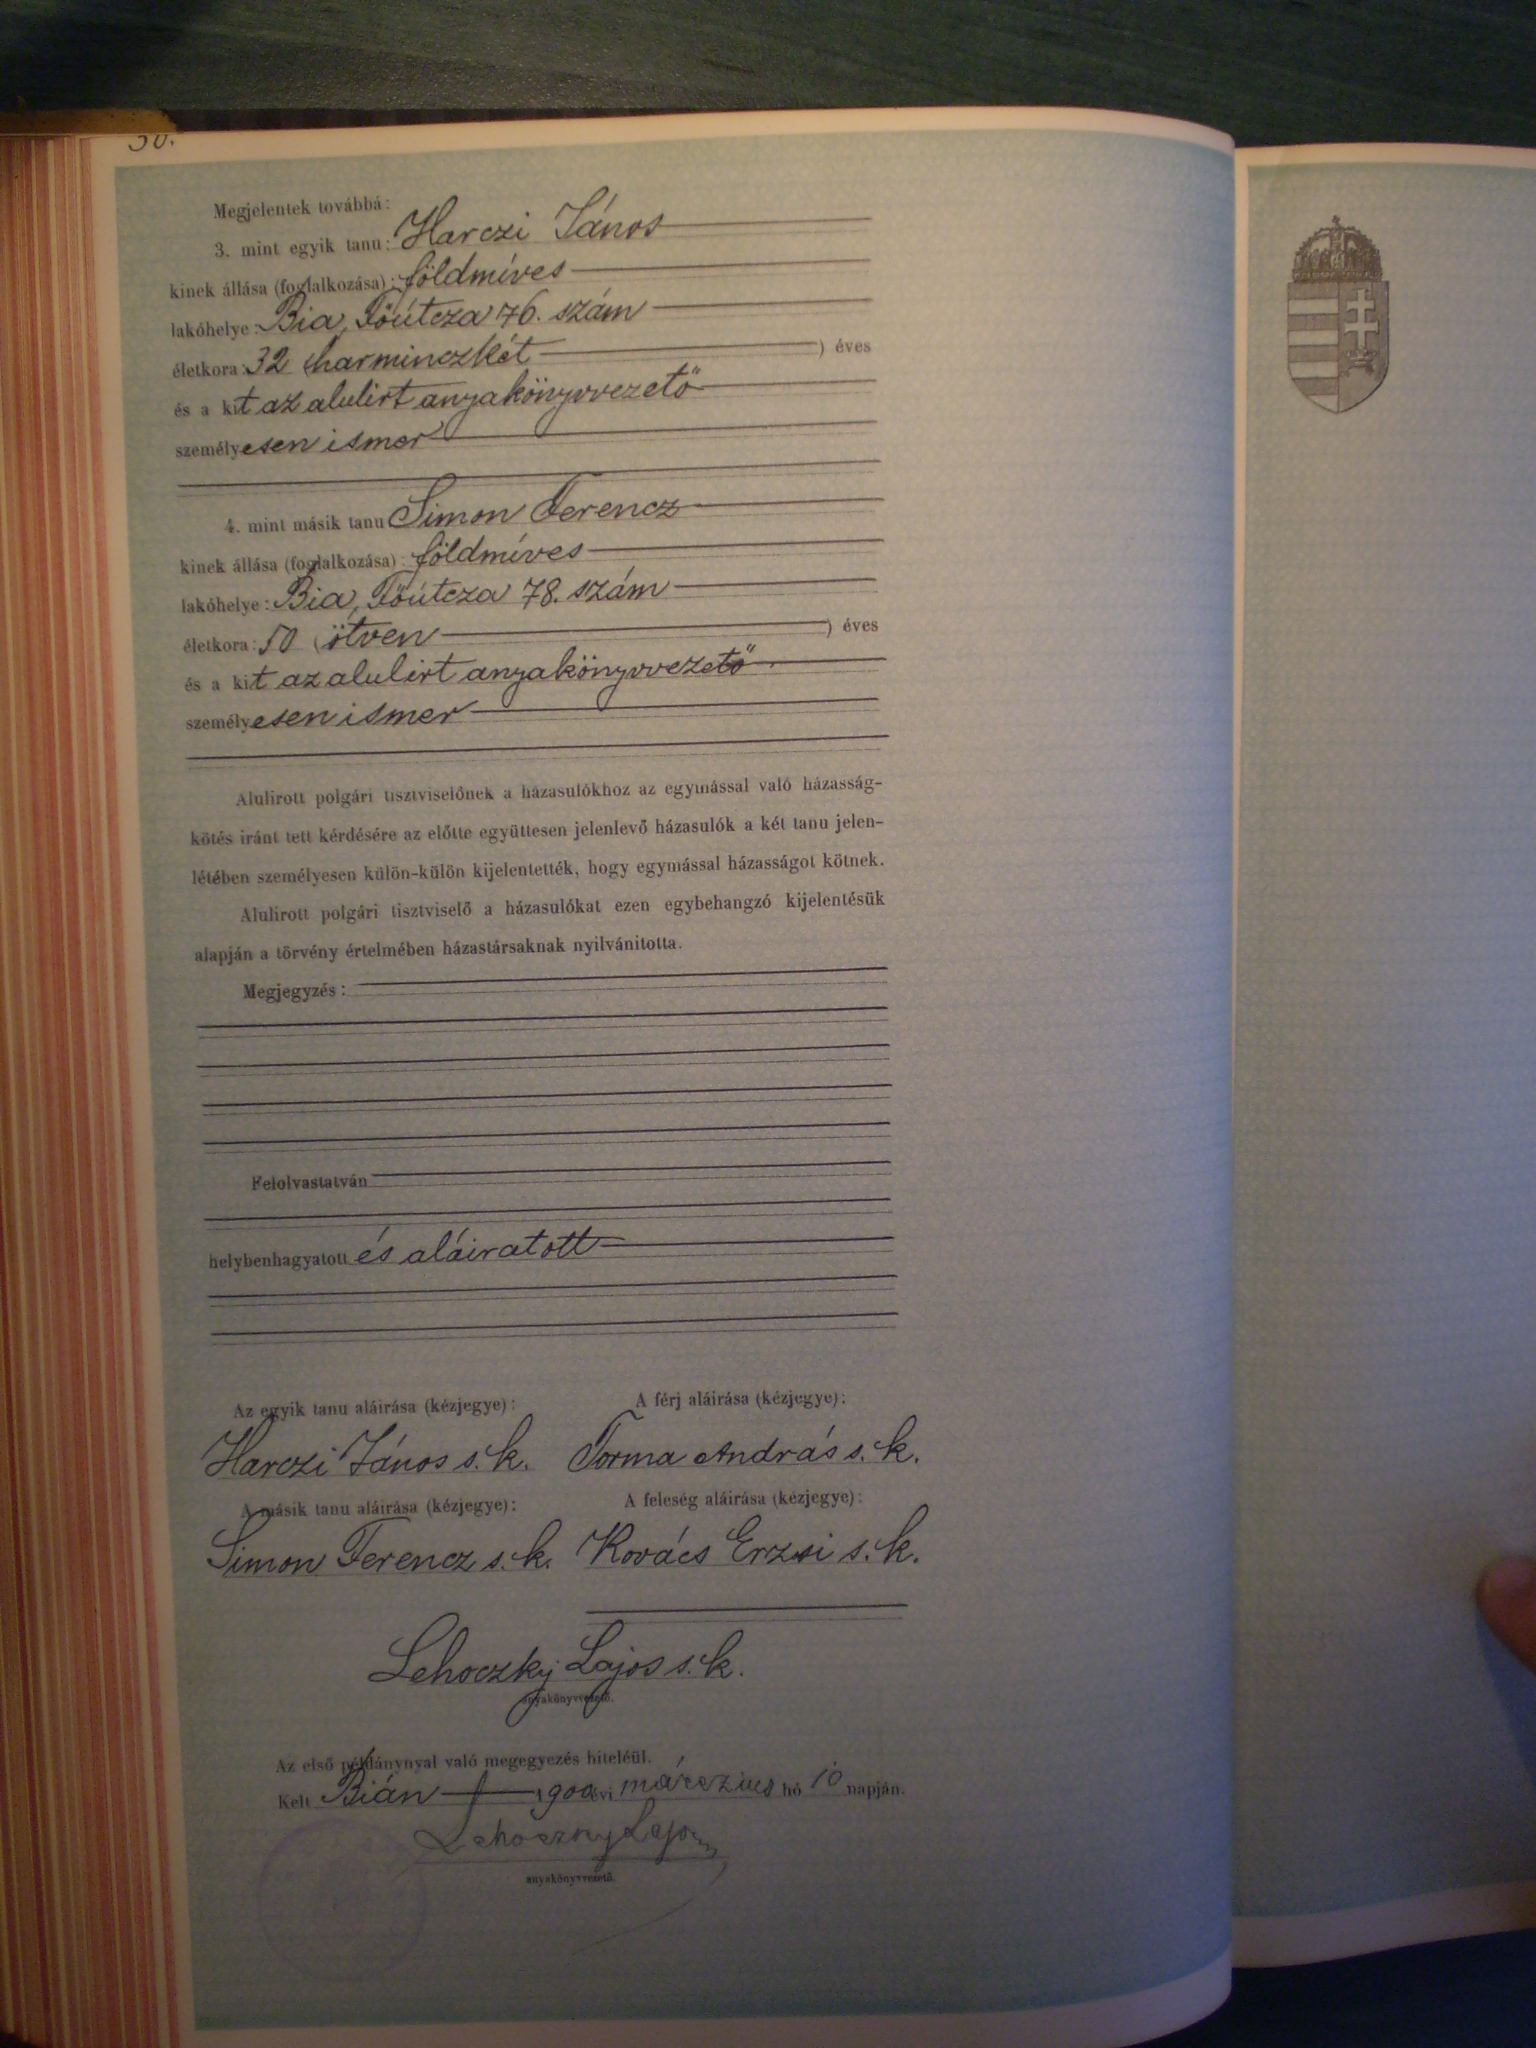 30.
Megjelentek továbbá:
3. mint egyik tanu: Harczi János
kinek állása (foglalkozása): földmíves
lakóhelye: Bia, Főútcza 76. szám
életkora: 32 (harminczkét ) éves
és a kit az alulirt anyakönyvvezető
személyesen ismer
4. mint másik tanu Simon Ferencz
kinek állása (foglalkozása): földmíves
lakóhelye: Bia, Főútcza 78. szám
életkora: 50 (ötven ) éves
és a kit az alulirt anyakönyvvezető
személyesen ismer
Alulirott polgári tisztviselőnek a házasulókhoz az egymással való házasság-
kötés iránt tett kérdésére az előtte együttesen jelenlevő házasulók a két tanu jelen-
létében személyesen külön-külön kijelentették, hogy egymással házasságot kötnek.
Alulirott polgári tisztviselő a házasulókat ezen egybehangzó kijelentésük
alapján a törvény értelmében házastársaknak nyilvánitotta.
Megjegyzés:
Felolvastatván
helybenhagyatott és aláiratott
Az egyik tanu aláirása (kézjegye): A férj aláirása (kézjegye):
Harczi János s. k. Torma András s. k.
A másik tanu aláirása (kézjegye): A feleség aláirása (kézjegye):
Simon Ferencz s. k. Kovács Erzsi s. k.
Lehoczky Lajos s. k.
anyakönyvvezető.
Az első példánynyal való megegyezés hiteléül.
Kelt Bián 1900 évi márczius hó 10 napján.
Lehoczky Lajos
anyakönyvvezető.